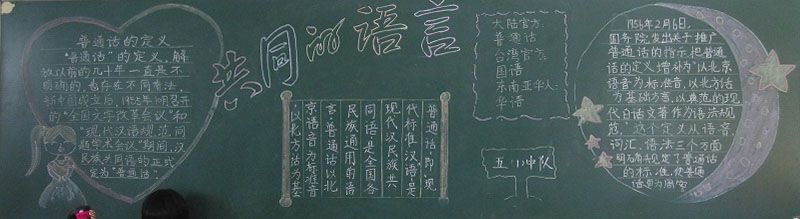 普通话的定义
"普通话"的定义,解
放以前的几十年一直是不
明确的,也存在不同看法。
新中国成立后,1955年10月召开
的"全国文字改革会议"和
"现代汉语规范问
题学术会议"期间,汉
民族共同语的正式
定为"普通话"。
共同的语言
普通话即"现
代标准汉语",是
现代汉民族共
同语,是全国各
民族通用的语
言。普通话以北
京语音为标准音
,以北方话为基
大陆官方:
普通话
台湾官方:
国语
东南亚华人:
华语
五(1)中队
1956年2月6日,
国务院发出关于推广
普通话的指示,把普通
话的定义增补为"以北京
语音为标准音,以北方话
为基础方言,以典范的现
代白话文著作为语法规
范"。这个定义从语音、
词汇、语法三个方面
明确规定了普通话
的标准,使普通
话更为周密